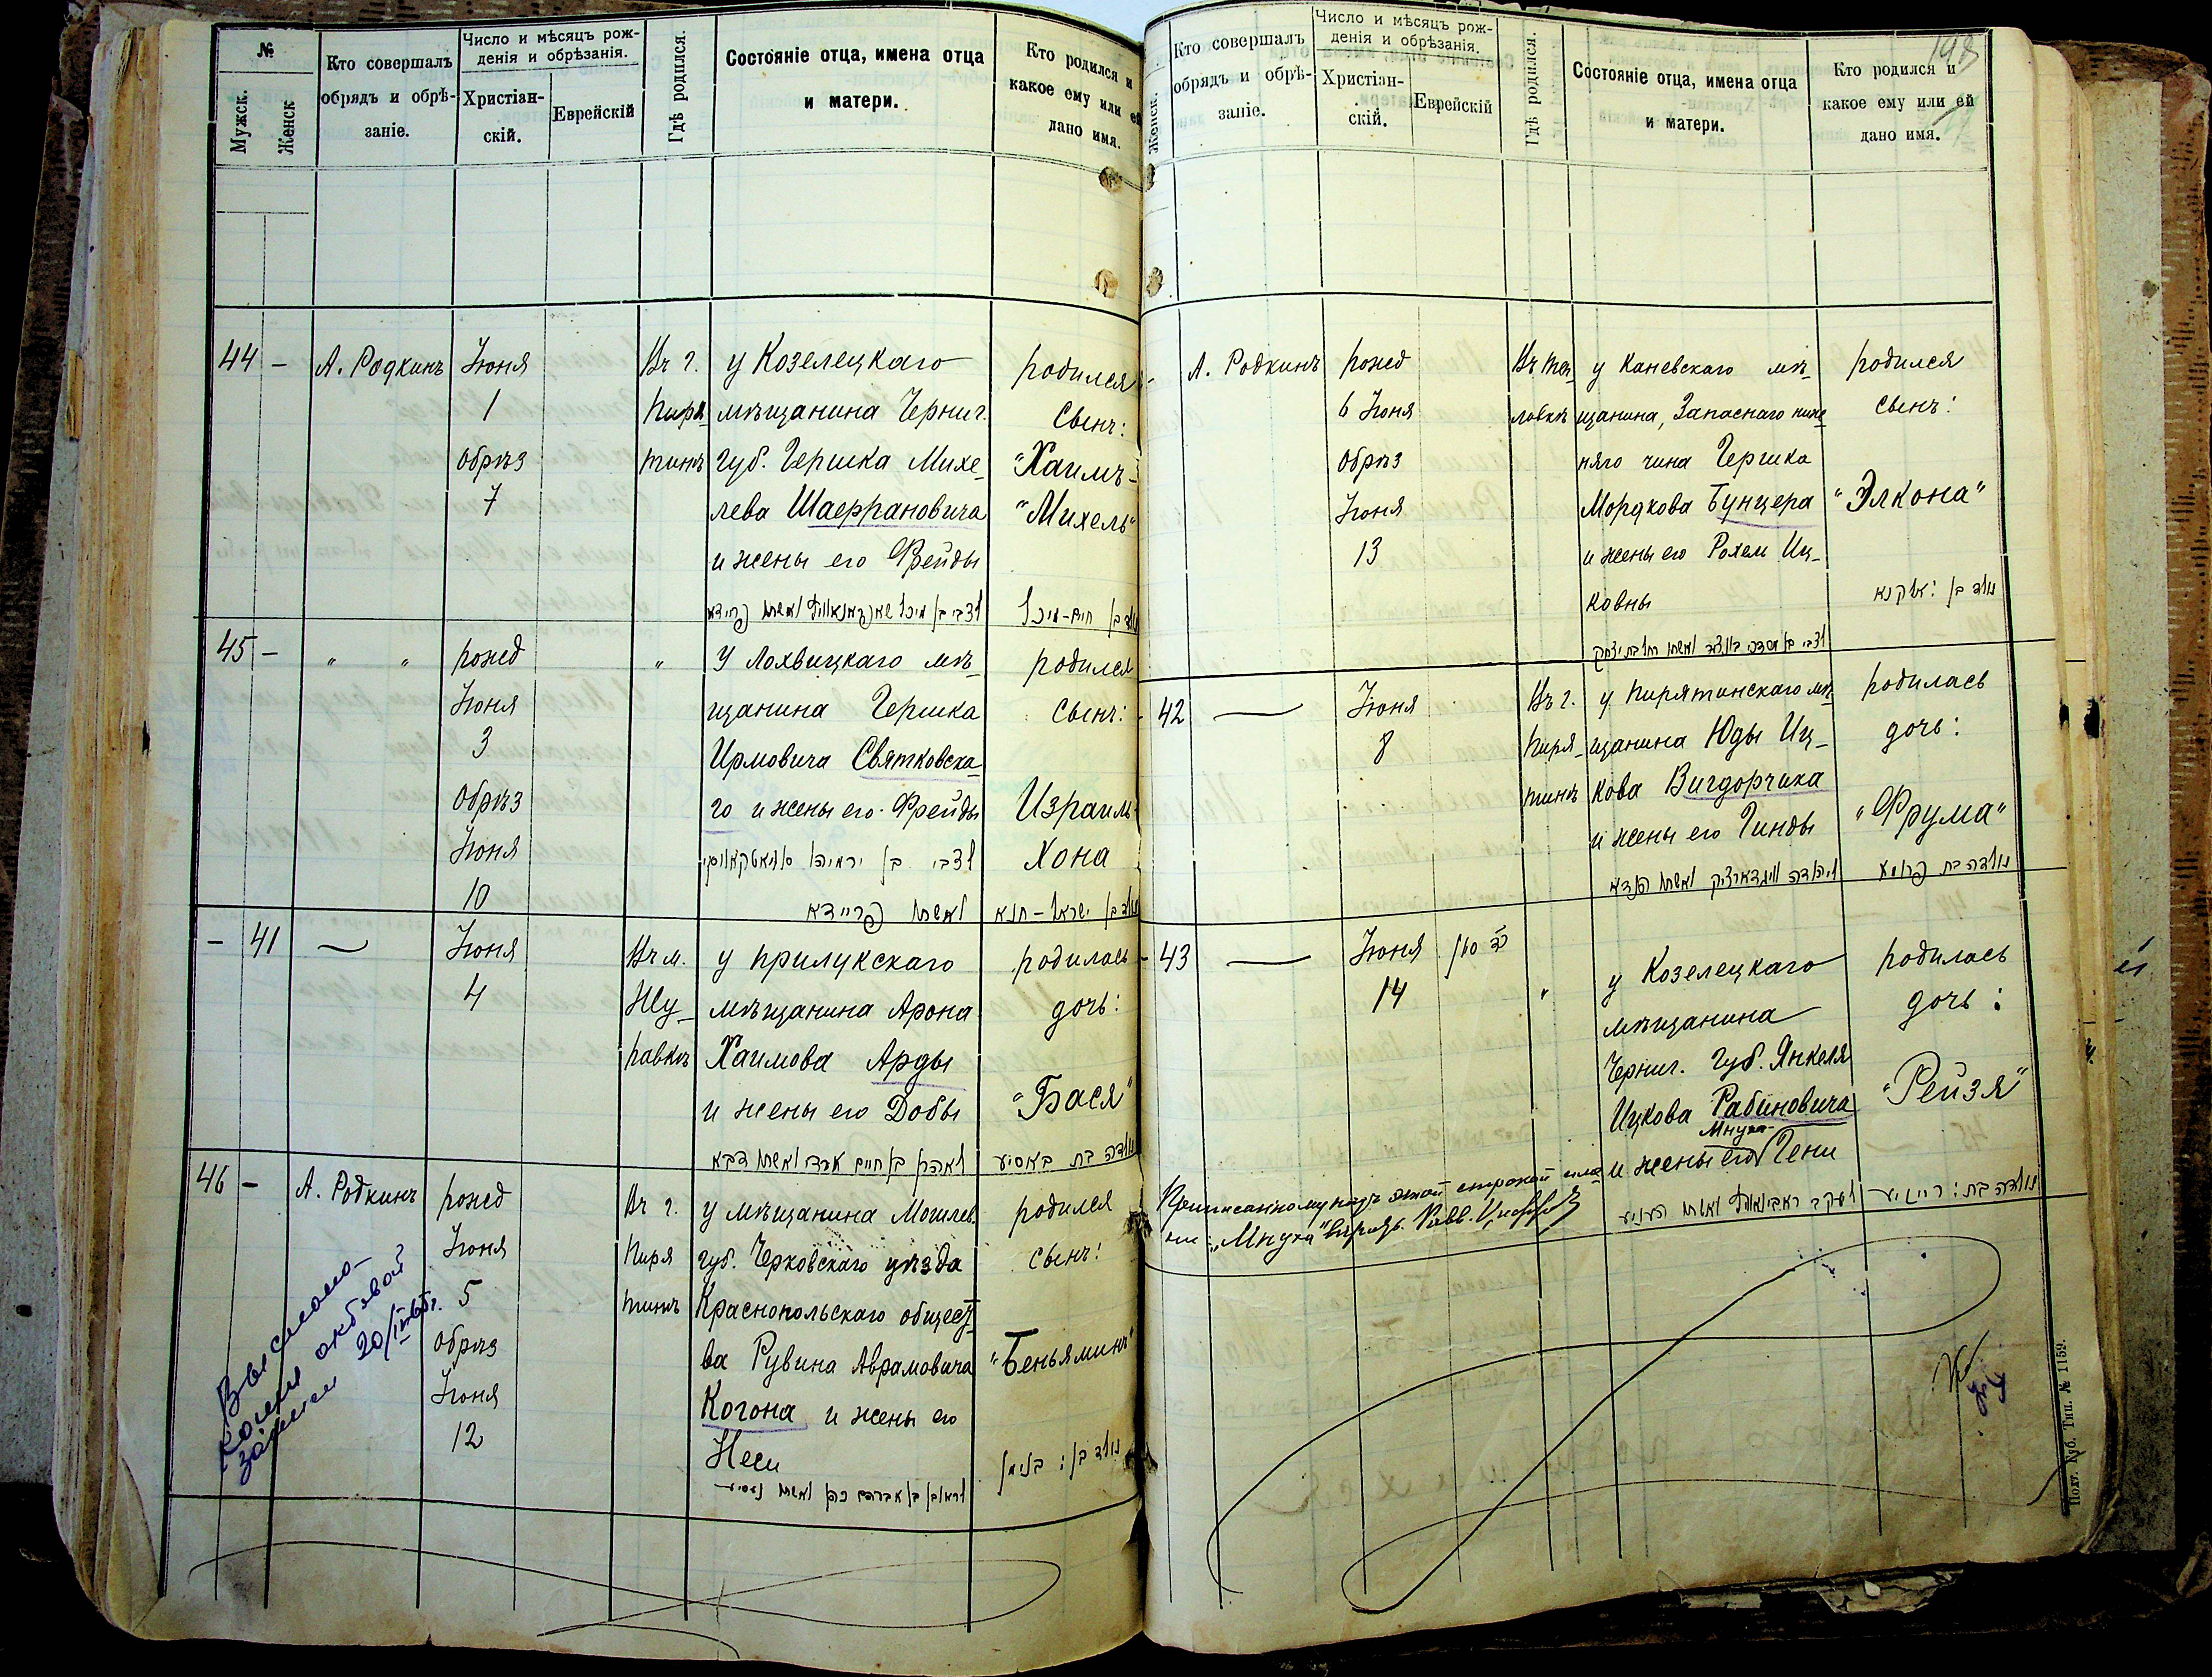 №
Мужск.
Женск
Кто совершалъ
обрядъ и обрѣ-
заніе.
Число и мѣсяцъ рож-
денія и обрѣзанія.
Христіан-
скій.
Еврейскій
Гдѣ родился.
Состояніе отца, имена отца
и матери.
Кто родился и
какое ему или ей
дано имя.
44 -
А. Родкинъ
Іюня
1
Обрѣз
7
Въ г.
Пиря-
тинѣ
у Козелецкаго
мѣщанина Черниг.
губ. Гершка Михе-
лева Шаффрановича
и жены его Фрейды
родился
Сынъ:
"Хаимъ-
"Михель"
45 -
" "
рожд
Іюня
3
Обрѣз
Іюня
10
"
У Лохвицкаго мѣ-
щанина Гершка
Ирмовича Святковска-
го и жены его Фрейды
לצבי בן ירמיהו סוויאטקאווסקי
ואשתו פריידא
родился
Сынъ:
Израиль-
Хона
נולד בן ישראל-חנא
- 41
Іюня
4
Въ м.
Жу-
равкѣ
у прилукскаго
мѣщанина Арона
Хаимова Арды
и жены его Добы
לאהרן בן חיים ארדי ואשתו דבא
родилась
дочь:
"Бася"
נולדה בת באסיע
46 -
А. Родкинъ
рожд
Іюня
5
Обрѣз
Іюня
12
Въ г.
Пиря
тинѣ
у мѣщанина Могилев.
губ. Чериковскаго уѣзда
Краснопольскаго общест-
ва Рувина Аврамовича
Когона и жены его
Неси
לראובן בן אברהם כהן ואשתו נעסיע
родился
сынъ:
"Беньяминъ"
נולד בן: בנימן
Женск.
Кто совершалъ
обрядъ и обрѣ-
заніе.
Число и мѣсяцъ рож-
денія и обрѣзанія.
Христіан-
скій.
Еврейскій
Гдѣ родился.
Состояніе отца, имена отца
и матери.
Кто родился и
какое ему или ей
дано имя.
А. Родкинъ
рожд
6 Іюня
Обрѣз
Іюня
13
ловкѣ
у Каневскаго мѣ-
щанина, Запаснаго ниж-
няго чина Гершка
Мордкова Бунцера
и жены его Рохли Иц-
ковны
родился
сынъ:
"Элкона"
נולד בן: אלקנא
42
Іюня
8
Въ г.
Пиря-
тинѣ
у Пирятинскаго мѣ-
щанина Юды Иц-
кова Вигдорчика
и жены его Гинды
родилась
дочь:
"Фрума"
נולדה בת פרומע
43
Іюня
14
"
у Козелецкаго
мѣщанина
Черниг. губ. Янкеля
Ицкова Рабиновича
Мнуха-
и жены его Гени
ליעקב ראבינאוויץ ואשתו העניע
родилась
дочь:
"Рейзя"
נולדה בת: רייזיע
Полт. Губ. Тип. № 1159.